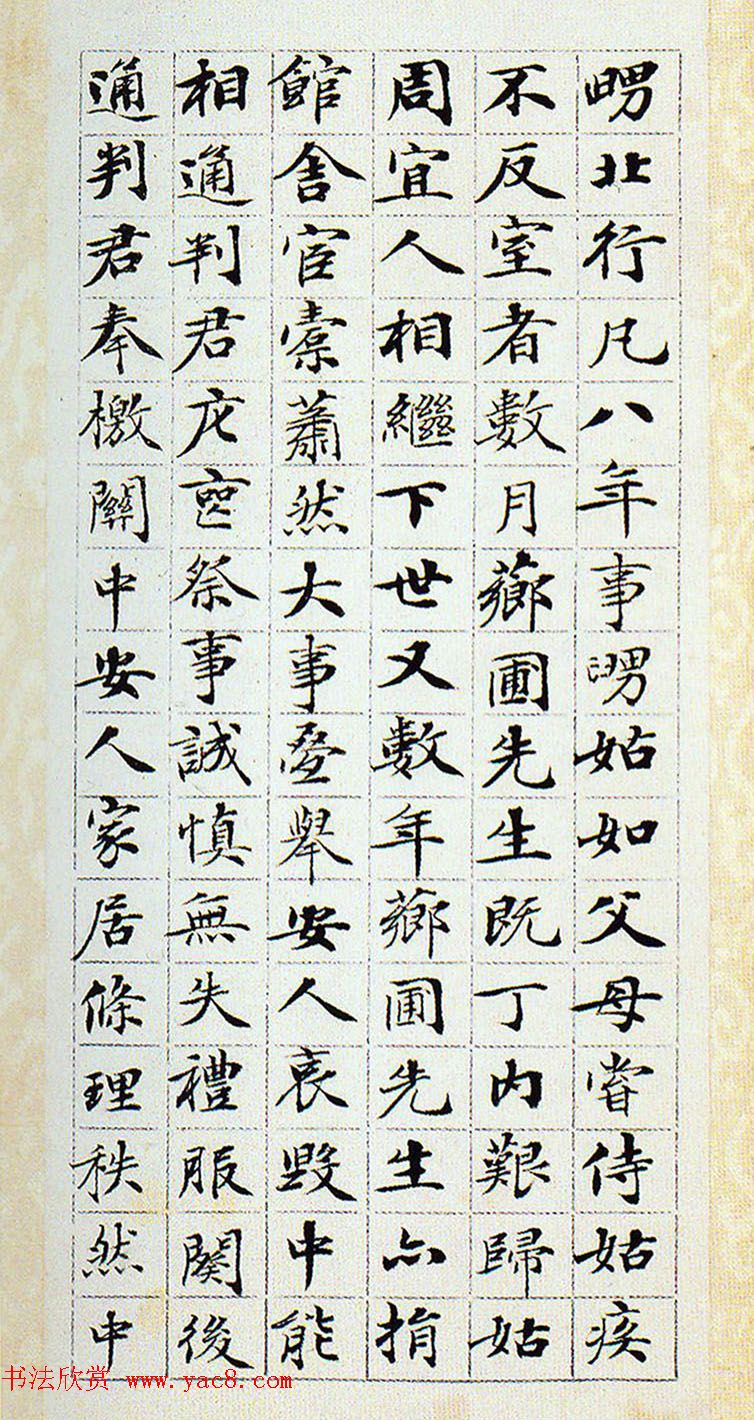 舅北行凡八年事舅姑如父母嘗侍姑疾
不反室者數月薌圃先生既丁内艱歸姑
周宜人相繼下世又數年薌圃先生亦捐
館舍宦橐蕭然大事疊舉安人哀毀中能
相通判君庀喪祭事誠慎無失禮服闋後
通判君奉檄關中安人家居條理秩然中
书法欣赏 www.yac8.com